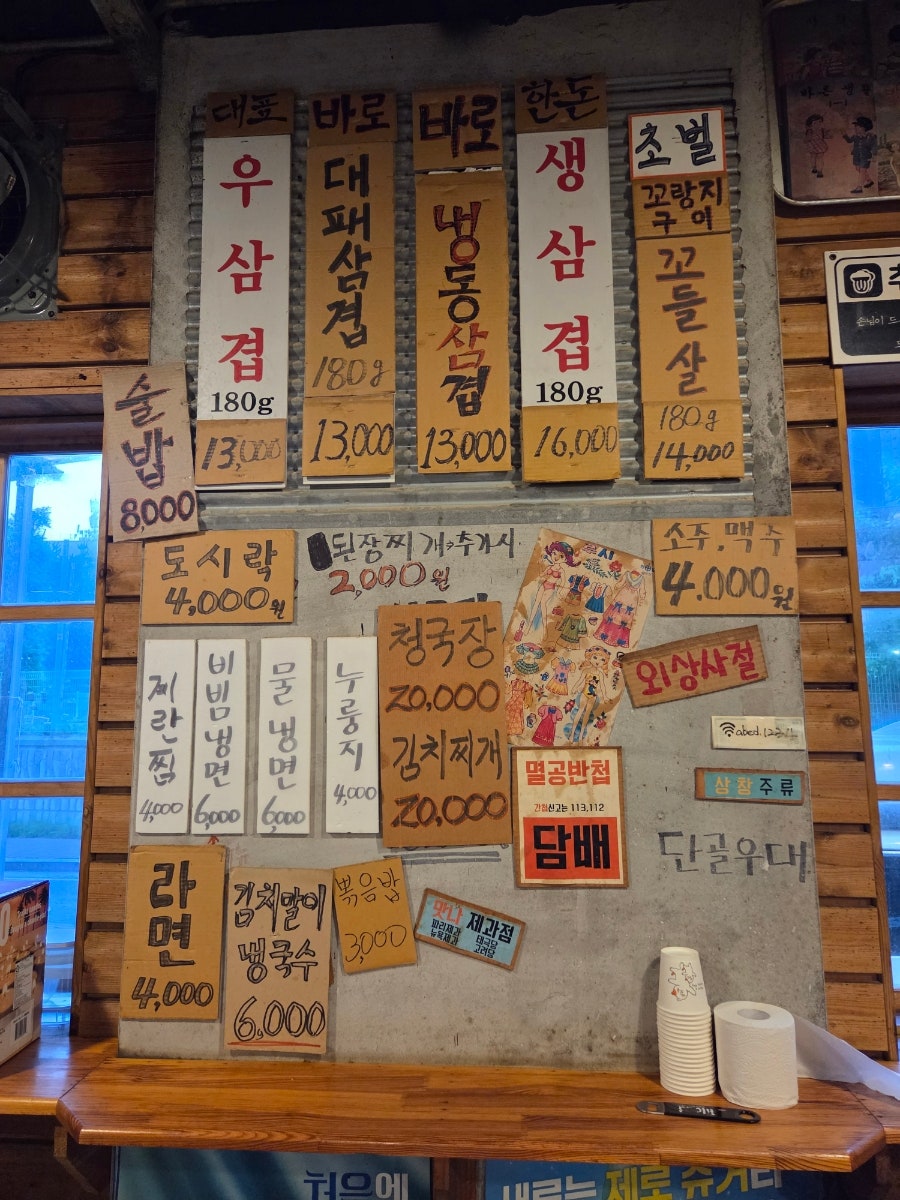 대표
우삼겹
180g
13,000
바로
대패삼겹
180g
13,000
바로
냉동삼겹
13,000
한돈
생삼겹
180g
16,000
초벌
꼬랑지
구이
꼬들살
180g
14,000
술밥
8,000
도시락
4,000원
된장찌개→추가시
2,000원
소주.맥주
4.000원
계란찜
4,000
비빔냉면
6,000
물냉면
6,000
누룽지
4,000
청국장
20,000
김치찌개
20,000
외상사절
abcd.1234
삼참주류
멸공반첩
간첩신고는 113,112
담배
단골우대
라면
4,000
김치말이
냉국수
6,000
볶음밥
3,000
맛나 제과점
파리제과
뉴욕제과
태극당
고려당
손님이
처음에
새로는 제로